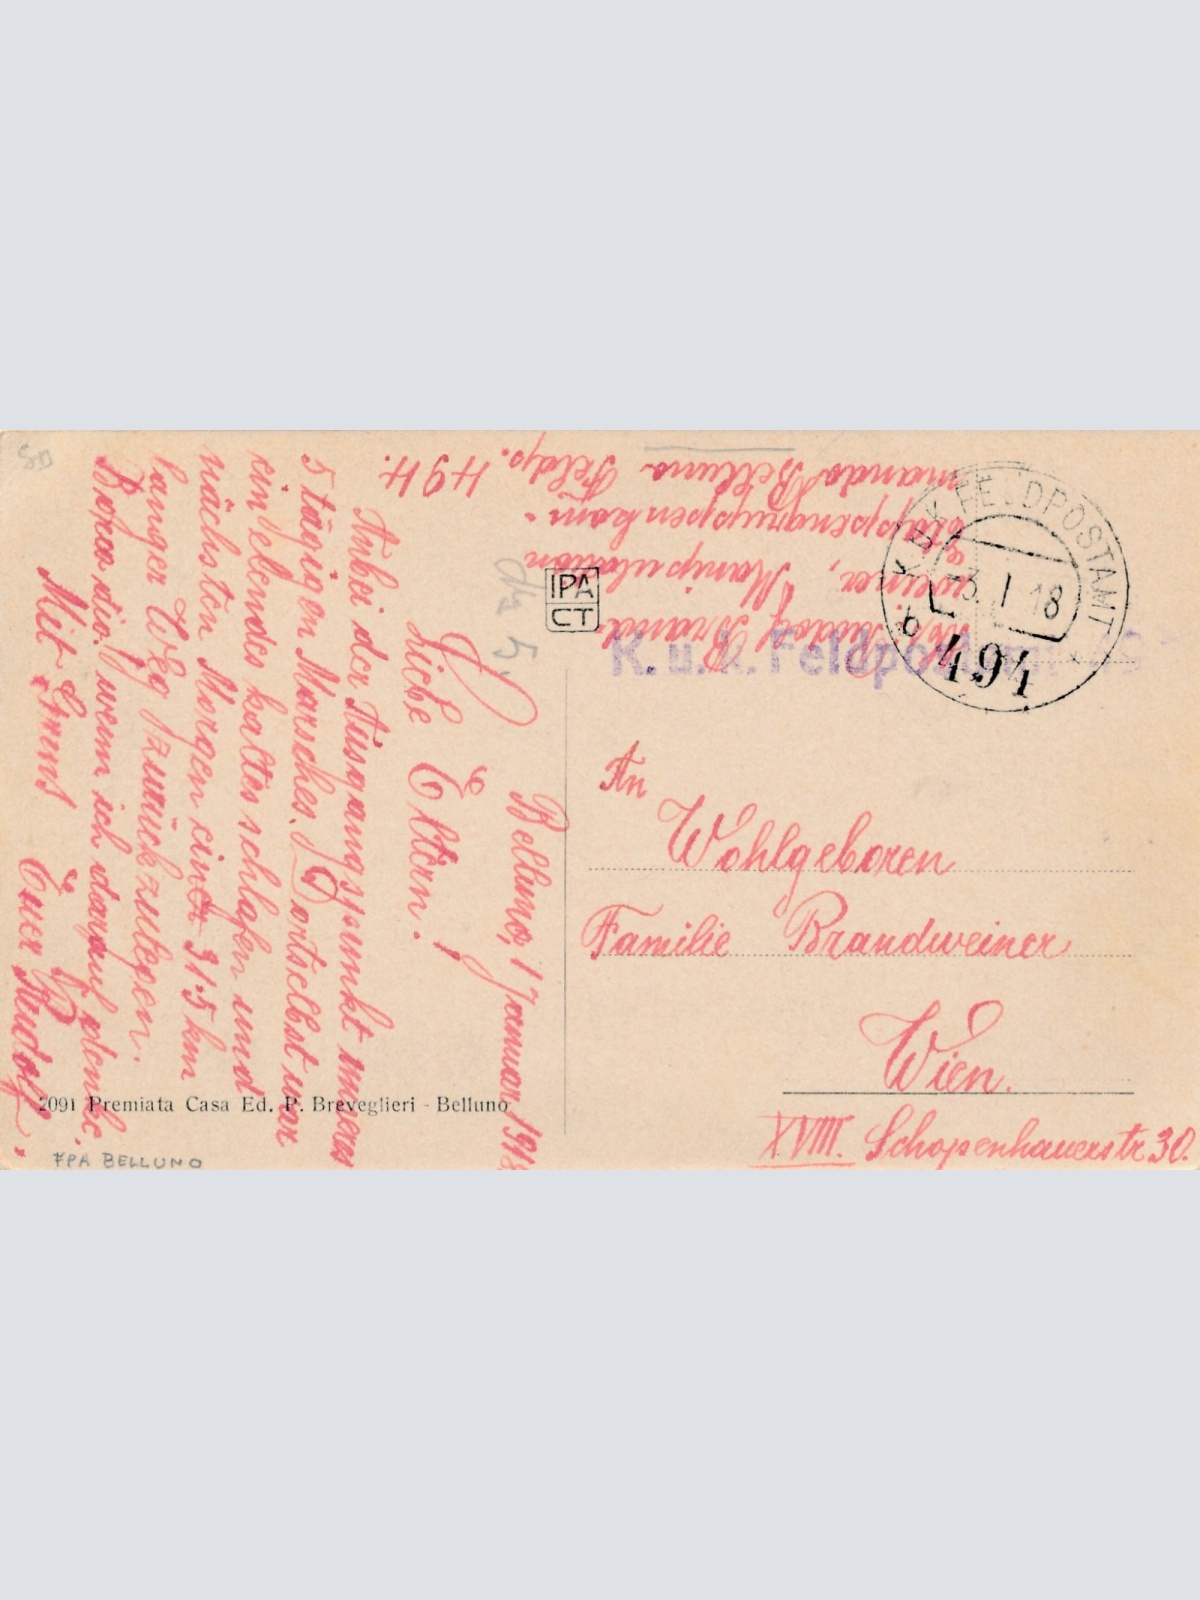 Belluno, 1 Januar 1918
Liebe Eltern!
Anbei der Ausgangspunkt unseres
5 tägigen Marsches. Dortselbst war
ein elendes kaltes schlafen und
nächsten Morgen ein 31.5 km
langer Weg zurückzulegen.
Bora dio. wenn ich darauf denke.
Mit Gruss Euer Rudolf.
Rudolf Brand-
weiner, Manipulation
Etappengruppenkom-
mando Belluno Feldp. 494.
K. u. k. Feldpostamt 49
K.u.K. FELDPOSTAMT
3. I. 18
b
494
*
IPA
CT
An
Wohlgeboren
Familie Brandweiner
Wien.
XVIII. Schopenhauerstr 30.
2091 Premiata Casa Ed. P. Breveglieri - Belluno
FPA BELLUNO